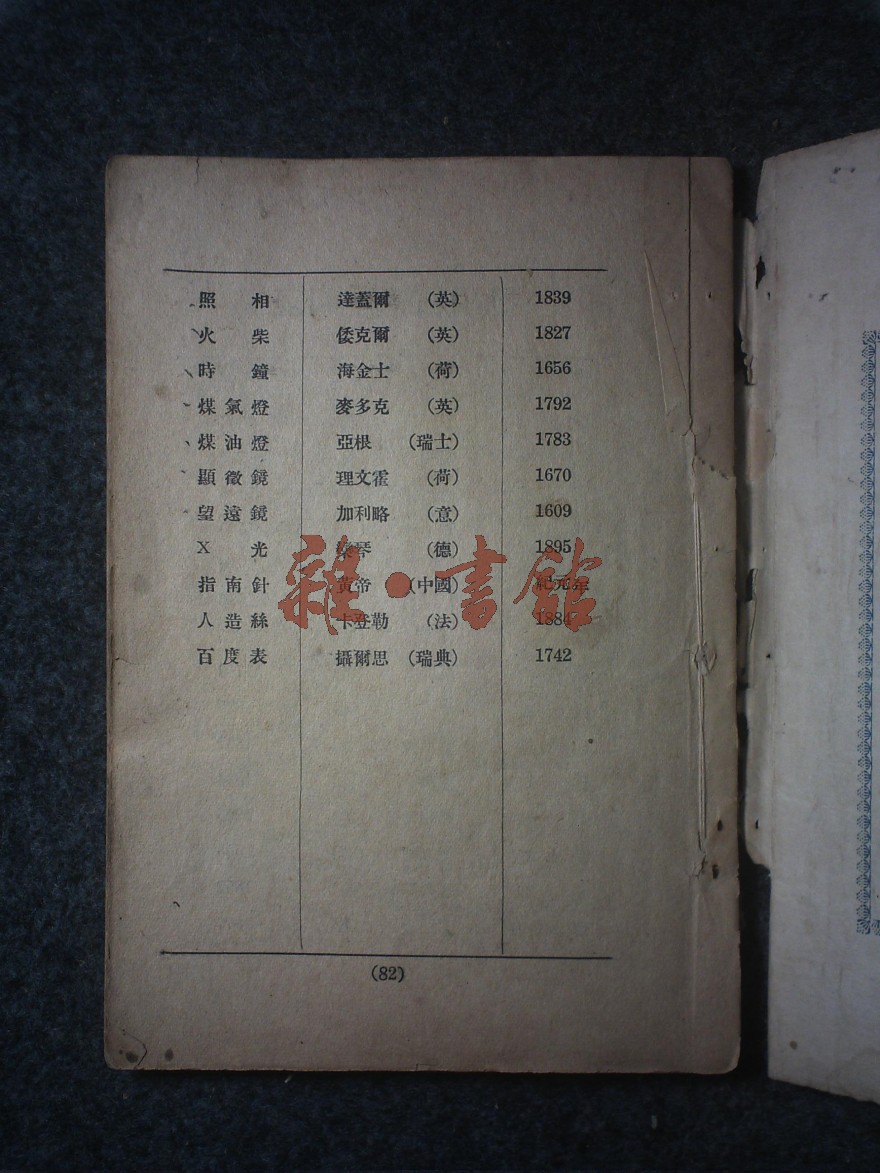 照相 達蓋爾 (英) 1839
火柴 倭克爾 (英) 1827
時鐘 海金士 (荷) 1656
煤氣燈 麥多克 (英) 1792
煤油燈 亞根 (瑞士) 1783
顯微鏡 理文霍 (荷) 1670
望遠鏡 加利略 (意) 1609
X光 琴 (德) 1895
指南針 黃帝 (中國) 紀元年
人造絲 卡登勒 (法) 1884
百度表 攝爾思 (瑞典) 1742
雜·書館
(82)